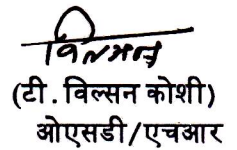 विल्सन
(टी. विल्सन कोशी)
ओएसडी/एचआर